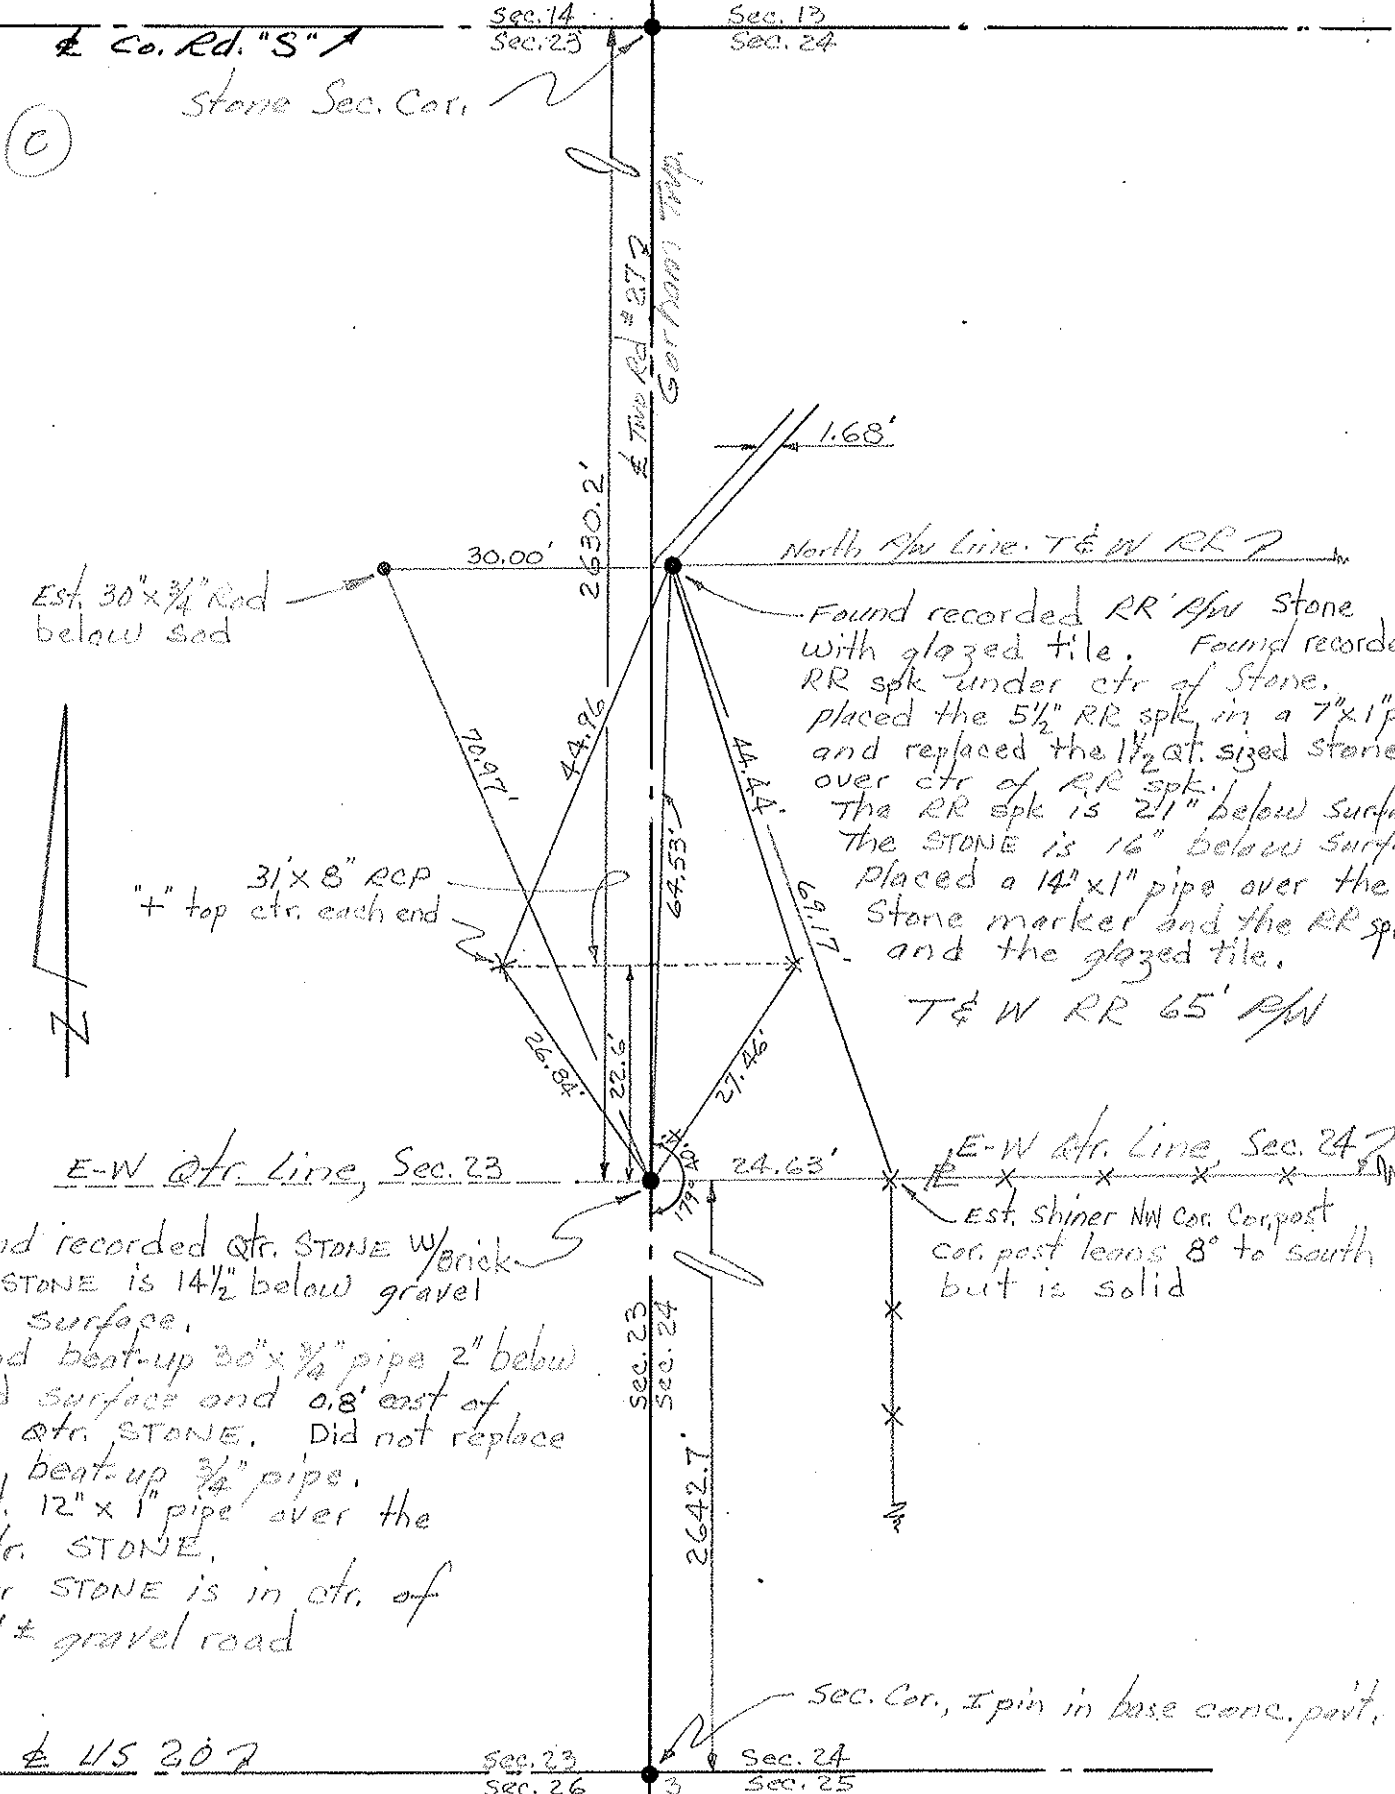 Sec. 14
Sec. 13
Sec. 23
Sec. 24
℄ Co. Rd. "S"
Stone Sec. Cor.
C
℄ Twp Rd #27
Gorham Twp.
2630.2'
1.68'
30.00'
North R/W Line. T & W RR
Est. 30" x 3/4" Rod
below sod
Found recorded RR R/W Stone
with glazed tile. Found recorde
RR spk under ctr of Stone.
placed the 5½" RR spk in a 7"x1" p
and replaced the 1½ qt. sized Stone
over ctr of RR spk.
The RR spk is 21" below Surfa
The STONE is 16" below Surfa
Placed a 14"x1" pipe over the
Stone marker and the RR sp
and the glazed tile.
T & W RR 65' R/W
70.97'
44.96
64.53'
44.44'
69.17
31'x 8" RCP
"+" top ctr. each end
26.84'
22.6'
27.46'
Z
E-W Qtr. Line, Sec. 23
24.63'
℄ E-W Qtr. Line, Sec. 24
Est. Shiner NW Cor. Cor. post
cor. post leans 8° to south
but is solid
nd recorded Qtr. STONE W/Brick
STONE is 14½" below gravel
surface.
nd beat-up 30" x 3/4" pipe 2" below
d surface and 0.8' east of
Qtr. STONE. Did not replace
beat-up 3/4" pipe.
t. 12" x 1" pipe over the
tr. STONE.
r STONE is in ctr. of
' ± gravel road
Sec. 23
Sec. 24
2642.7'
Sec. Cor., I pin in base conc. pav't.
℄ US 20
Sec. 23
Sec. 24
Sec. 26
3
Sec. 25